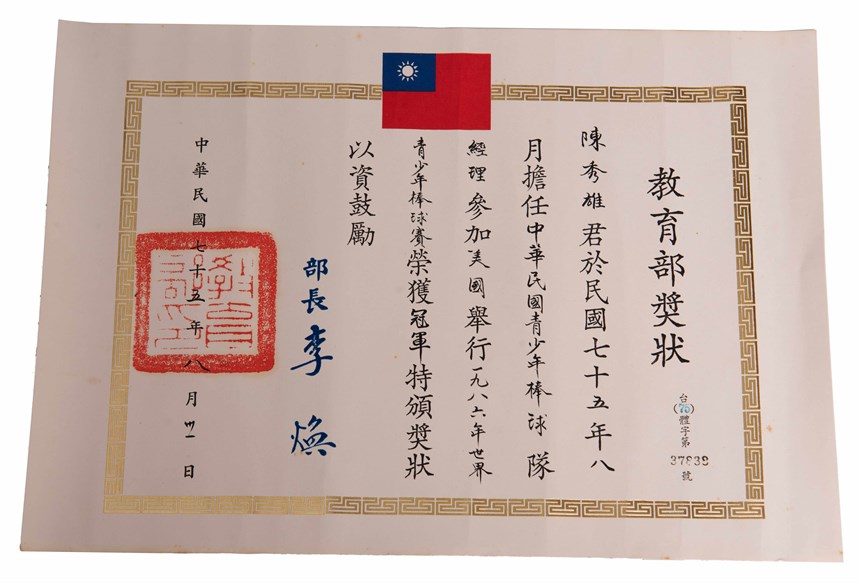 教育部獎狀
台(75)體字第37838號
陳秀雄君於民國七十五年八
月擔任中華民國青少年棒球隊
經理參加美國舉行一九八六年世界
青少年棒球賽榮獲冠軍特頒獎狀
以資鼓勵
部長李煥
中華民國七十五年八月卅一日
教育部印